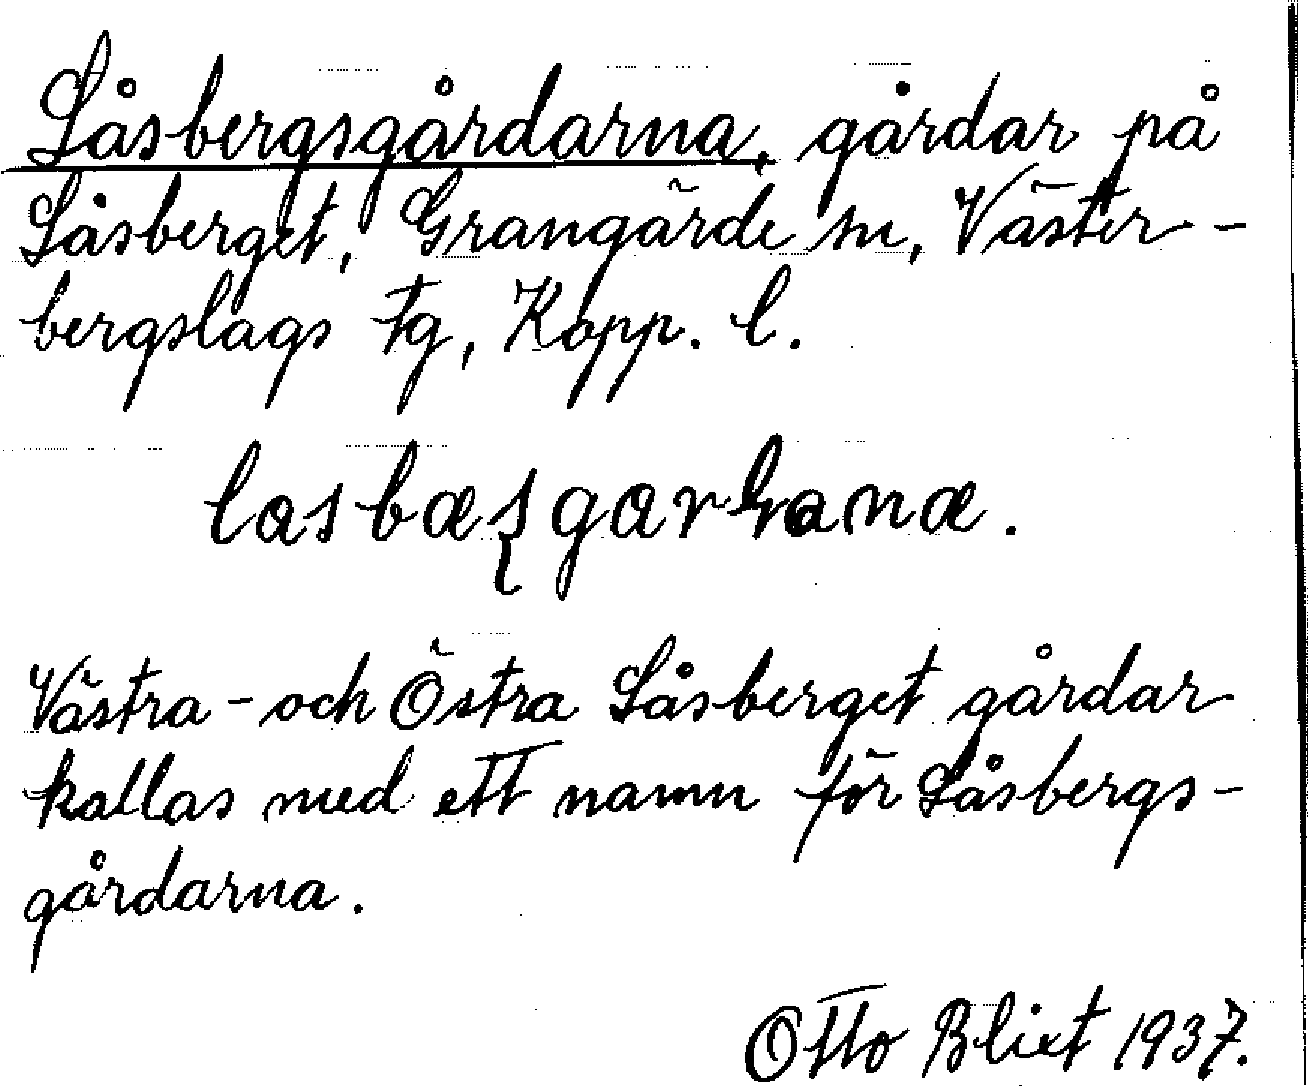 Låsbergsgårdarna, gårdar på
Låsberget, Grangärde sn, Väster-
bergslags fg, Kopp. l.
Västra - och Östra Låsberget gårdar
kallas med ett namn för Låsbergs-
gårdarna.
Otto Blixt 1937.